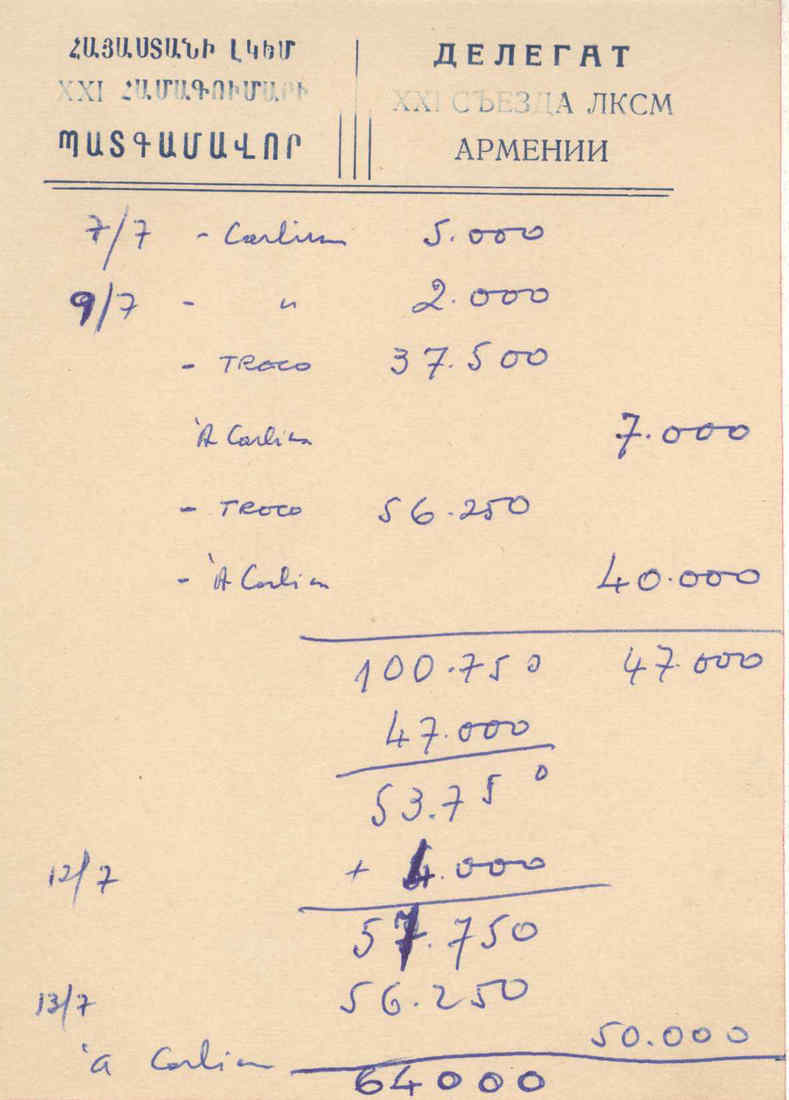 ՀԱՅԱՍՏԱՆԻ ԼԿԵՄ
XXI ՀԱՄԱԳՈՒՄԱՐԻ
ՊԱՏԳԱՄԱՎՈՐ
ДЕЛЕГАТ
XXI СЪЕЗДА ЛКСМ
АРМЕНИИ
7/7 - Carlina 5.000
9/7 - " 2.000
- TROCO 37.500
À Carlina 7.000
- TROCO 56.250
- À Carlina 40.000
100.750 47.000
47.000
53.750
12/7 + 4.000
57.750
13/7 56.250
50.000
à Carlina
64000